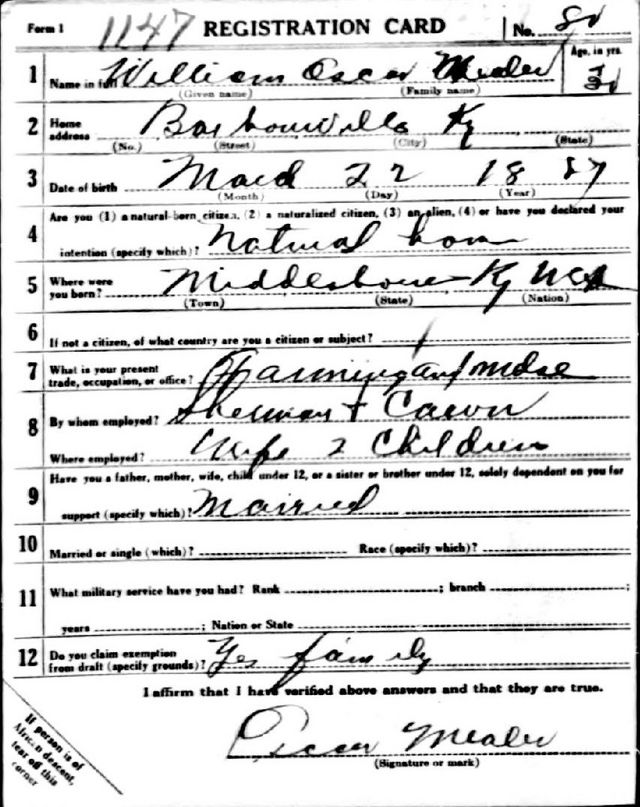 Form 1 1147 REGISTRATION CARD No. 80
1 Name in full William Oscar Mealer Age, in yrs. 30
(Given name) (Family name)
2 Home address Barbourville Ky
(No.) (Street) (City) (State)
3 Date of birth March 22 1887
(Month) (Day) (Year)
Are you (1) a natural-born citizen, (2) a naturalized citizen, (3) an alien, (4) or have you declared your
4 intention (specify which)? Natural born
5 Where were you born? Middlesboro Ky
(Town) (State) (Nation)
6 If not a citizen, of what country are you a citizen or subject?
7 What is your present trade, occupation, or office? Farming and mdse
8 By whom employed? Sherman +
Where employed? Wife 2 Children
Have you a father, mother, wife, child under 12, or a sister or brother under 12, solely dependent on you for
9 support (specify which)? Married
10 Married or single (which)? Race (specify which)?
11 What military service have you had? Rank ; branch ;
years ; Nation or State
12 Do you claim exemption from draft (specify grounds)? Yes family
I affirm that I have verified above answers and that they are true.
Oscar Mealer
(Signature or mark)
If person is of
African descent,
tear off this
corner